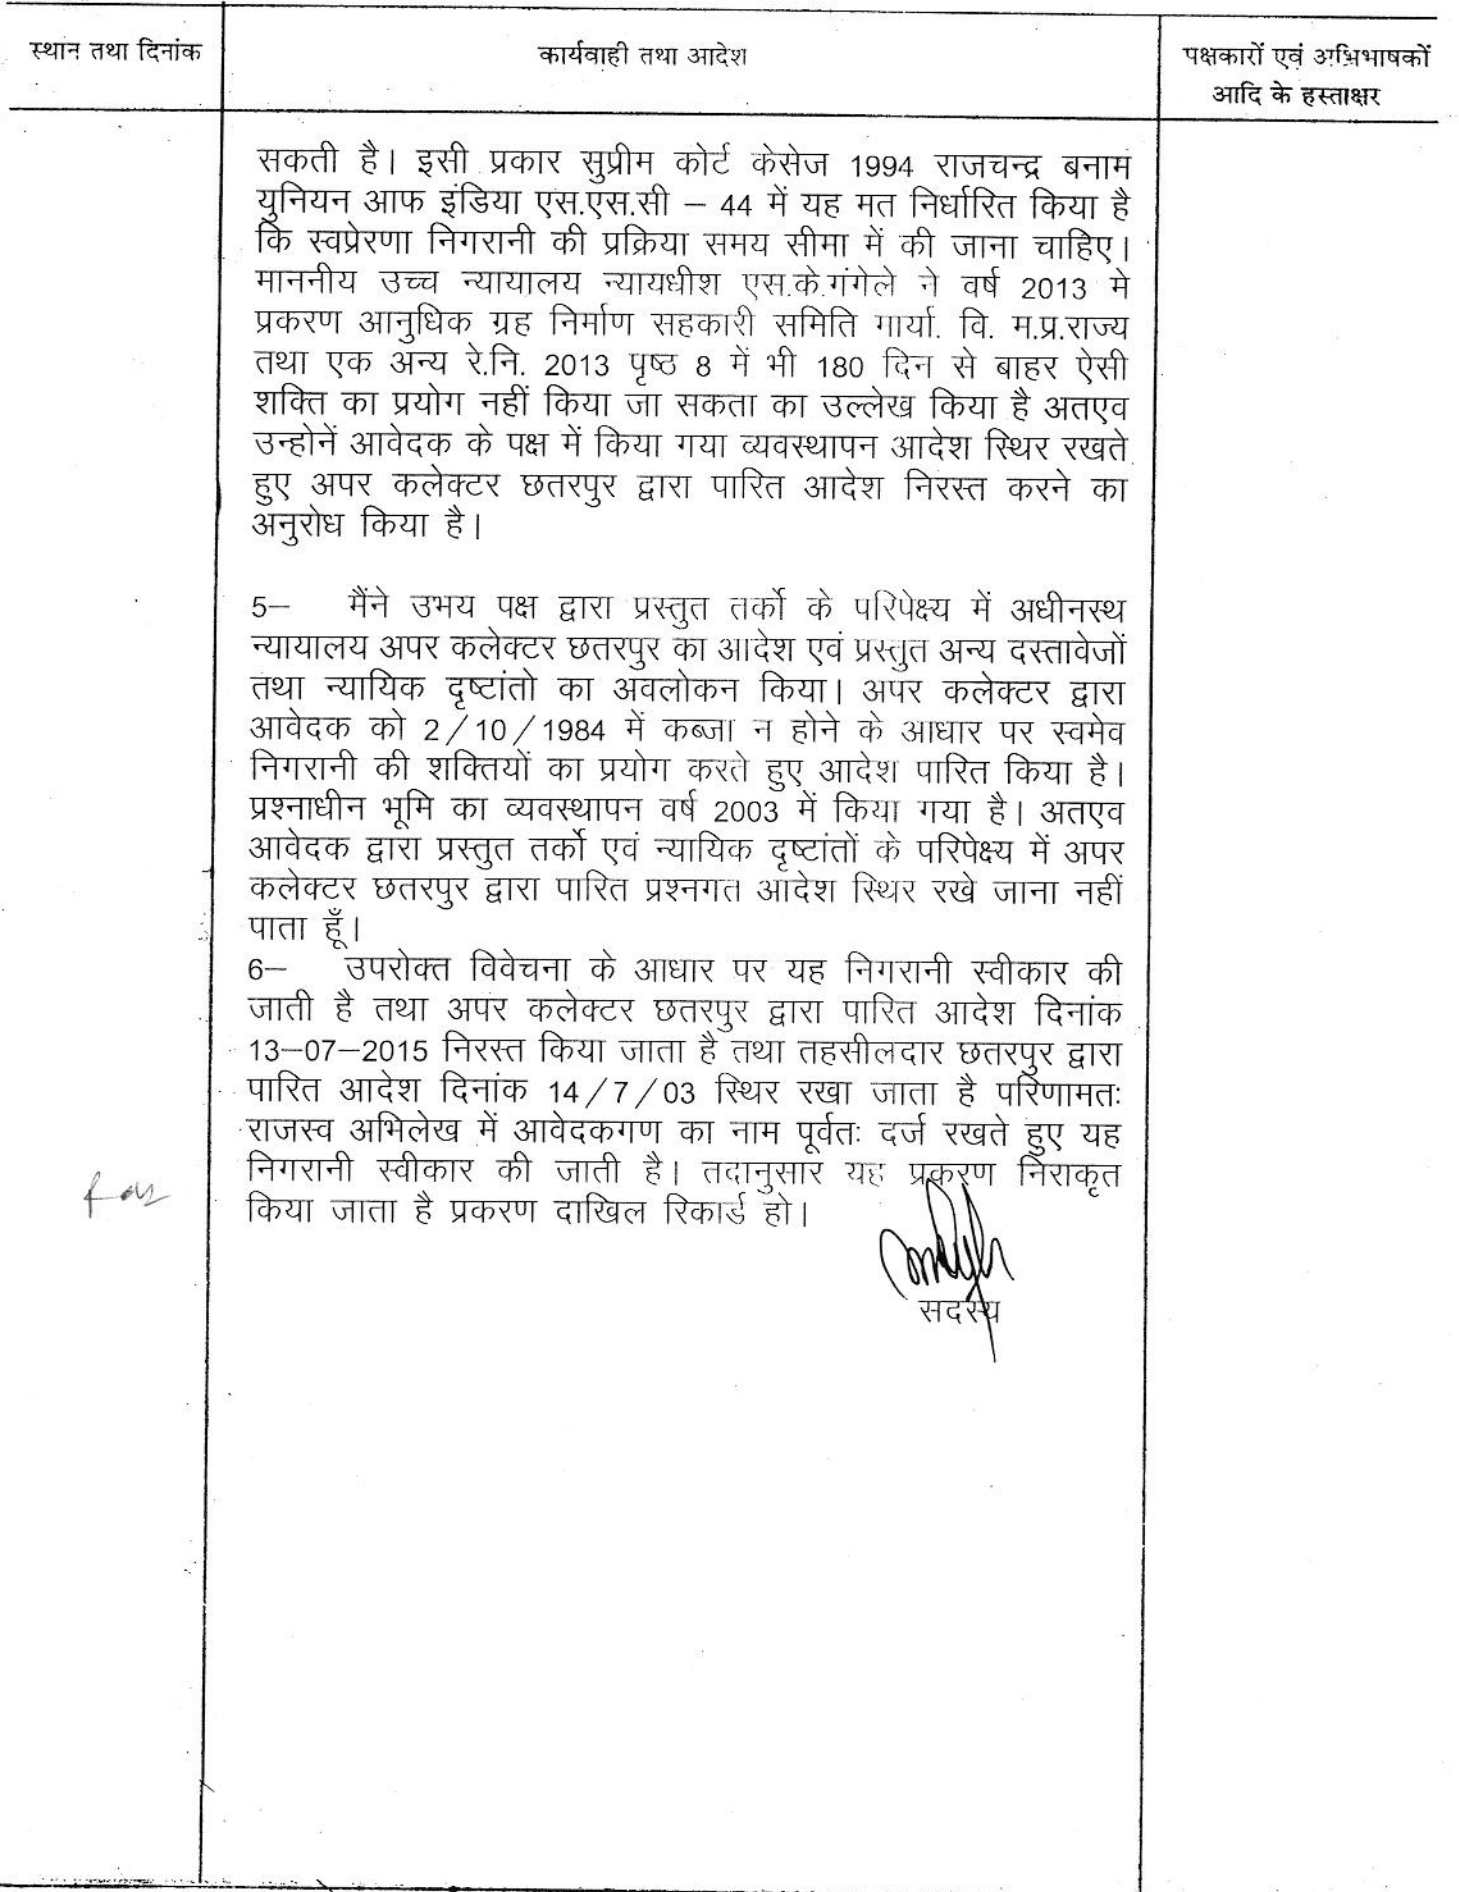 स्थान तथा दिनांक
कार्यवाही तथा आदेश
पक्षकारों एवं अभिभाषकों
आदि के हस्ताक्षर
सकती है। इसी प्रकार सुप्रीम कोर्ट केसेज 1994 राजचन्द्र बनाम
युनियन आफ इंडिया एस.एस.सी – 44 में यह मत निर्धारित किया है
कि स्वप्रेरणा निगरानी की प्रक्रिया समय सीमा में की जाना चाहिए।
माननीय उच्च न्यायालय न्यायधीश एस.के.गंगेले ने वर्ष 2013 मे
प्रकरण आनुधिक ग्रह निर्माण सहकारी समिति मार्या. वि. म.प्र.राज्य
तथा एक अन्य रे.नि. 2013 पृष्ठ 8 में भी 180 दिन से बाहर ऐसी
शक्ति का प्रयोग नहीं किया जा सकता का उल्लेख किया है अतएव
उन्होनें आवेदक के पक्ष में किया गया व्यवस्थापन आदेश स्थिर रखते
हुए अपर कलेक्टर छतरपुर द्वारा पारित आदेश निरस्त करने का
अनुरोध किया है।
5– मैंने उभय पक्ष द्वारा प्रस्तुत तर्को के परिपेक्ष्य में अधीनस्थ
न्यायालय अपर कलेक्टर छतरपुर का आदेश एवं प्रस्तुत अन्य दस्तावेजों
तथा न्यायिक दृष्टांतो का अवलोकन किया। अपर कलेक्टर द्वारा
आवेदक को 2/10/1984 में कब्जा न होने के आधार पर स्वमेव
निगरानी की शक्तियों का प्रयोग करते हुए आदेश पारित किया है।
प्रश्नाधीन भूमि का व्यवस्थापन वर्ष 2003 में किया गया है। अतएव
आवेदक द्वारा प्रस्तुत तर्को एवं न्यायिक दृष्टांतों के परिपेक्ष्य में अपर
कलेक्टर छतरपुर द्वारा पारित प्रश्नगत आदेश स्थिर रखे जाना नहीं
पाता हूँ।
6– उपरोक्त विवेचना के आधार पर यह निगरानी स्वीकार की
जाती है तथा अपर कलेक्टर छतरपुर द्वारा पारित आदेश दिनांक
13–07–2015 निरस्त किया जाता है तथा तहसीलदार छतरपुर द्वारा
पारित आदेश दिनांक 14/7/03 स्थिर रखा जाता है परिणामतः
राजस्व अभिलेख में आवेदकगण का नाम पूर्वतः दर्ज रखते हुए यह
निगरानी स्वीकार की जाती है। तदानुसार यह प्रकरण निराकृत
किया जाता है प्रकरण दाखिल रिकार्ड हो।
सदस्य